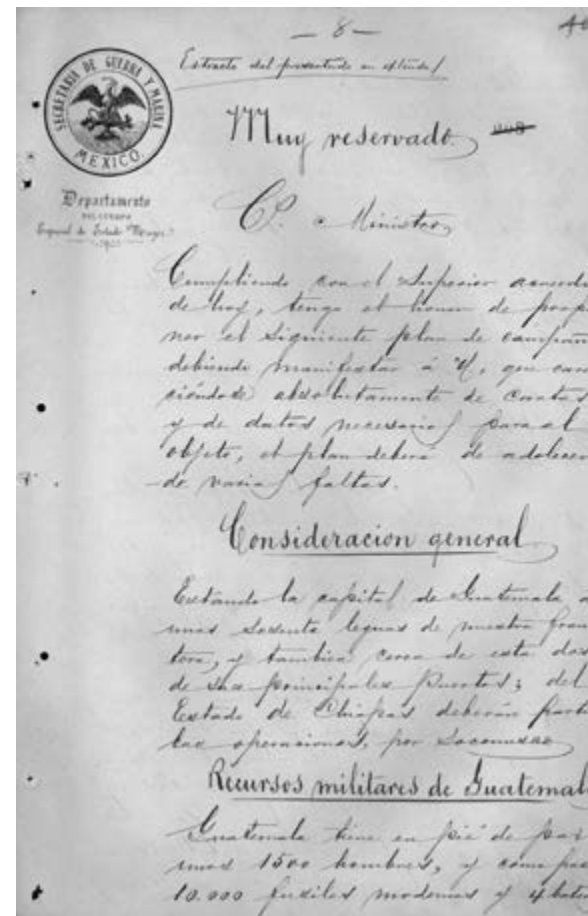 — 8 —
Extracto del presentado en
SECRETARIA DE GUERRA Y MARINA
MEXICO.
Muy reservado.
Departamento
DEL CUERPO
Especial de Estado Mayor
C. Ministro
Cumpliendo con el Superior acuerdo
de hoy, tengo el honor de propo
ner el siguiente plan de campaña
debiendo manifestar á V, que care
ciéndose absolutamente de cartas
y de datos necesarios para el
objeto, el plan deberá de adolecer
de varias faltas.
Consideracion general
Estando la capital de Guatemala a
unas sesenta leguas de nuestra fron
tera, y tambien cerca de esta dos
de sus principales Puertos; del
Estado de Chiapas deberán parti
las operaciones, por Soconusco
Recursos militares de Guatemala
Guatemala tiene en pié de paz
unos 1500 hombres, y como
10.000 fusiles modernos y 4